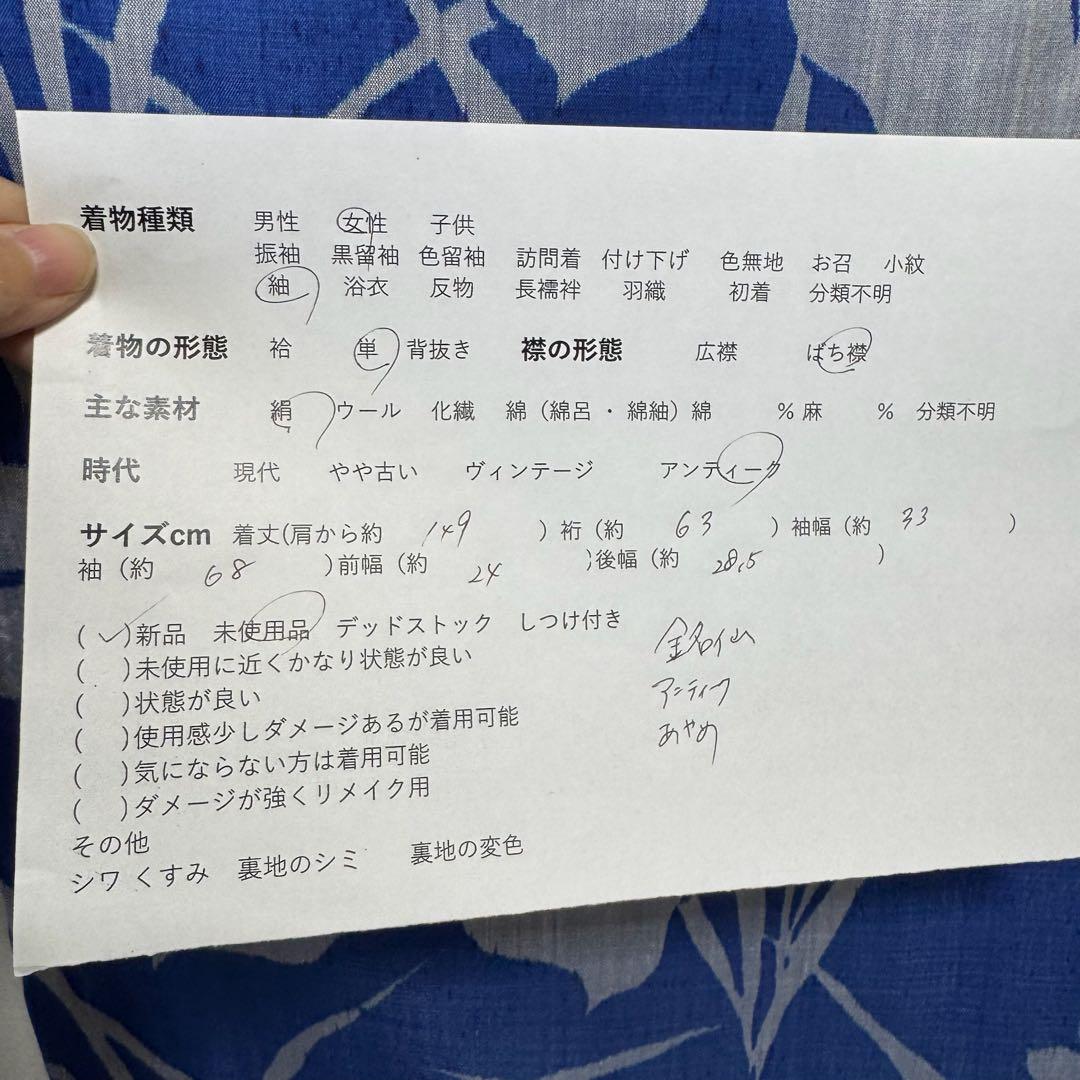 着物種類 男性 女性 子供
振袖 黒留袖 色留袖 訪問着 付け下げ 色無地 お召 小紋
紬 浴衣 反物 長襦袢 羽織 初着 分類不明
着物の形態 袷 単 背抜き 襟の形態 広襟 ばち襟
主な素材 絹 ウール 化繊 綿（綿呂・綿紬）綿 % 麻 % 分類不明
時代 現代 やや古い ヴィンテージ アンティーク
サイズcm 着丈(肩から約 149 ) 裄（約 63 ）袖幅（約 33 ）
袖（約 68 ）前幅（約 24 ）後幅（約 28.5 ）
( ✓ )新品 未使用品 デッドストック しつけ付き
( )未使用に近くかなり状態が良い
( )状態が良い
( )使用感少しダメージあるが着用可能
( )気にならない方は着用可能
( )ダメージが強くリメイク用
銘仙
アンティーク
あやめ
その他
シワ くすみ 裏地のシミ 裏地の変色